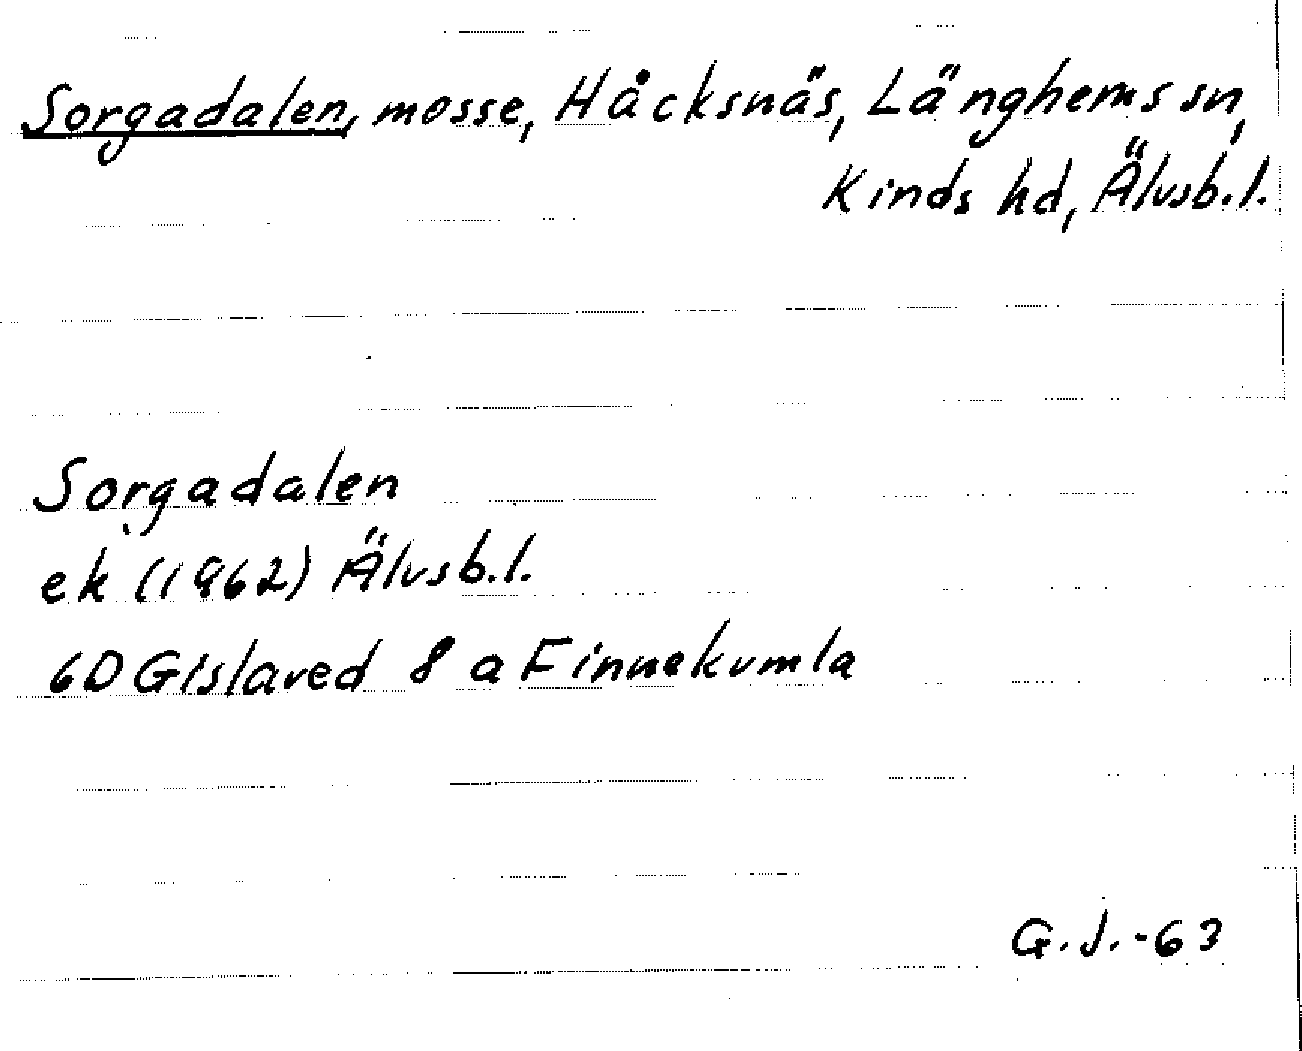 Sorgadalen, mosse, Håcksnäs, Länghems sn,
Kinds hd, Älvsb.l.
Sorgadalen
ek (1962) Älvsb.l.
6D Gislaved 8 a Finnekumla
G.J.-63